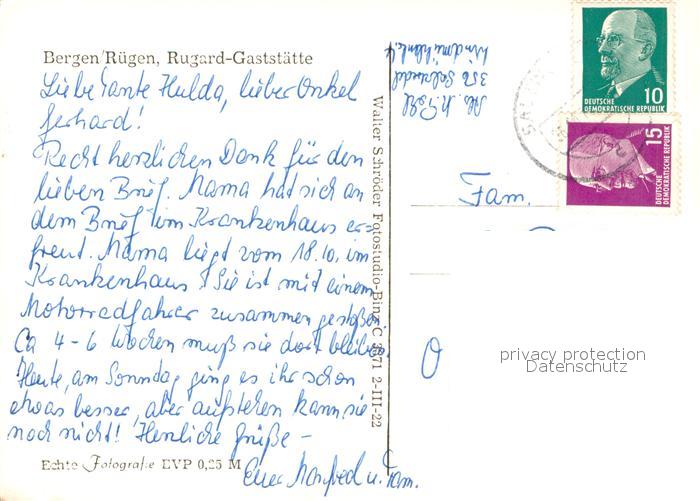 Bergen/Rügen, Rugard-Gaststätte
Liebe Tante Hulda, lieber Onkel
Gerhard!
Recht herzlichen Dank für den
lieben Brief. Mama hat sich an
dem Brief im Krankenhaus er=
freut. Mama liegt vom 18.10. im
Krankenhaus! Sie ist mit einem
Motorradfahrer zusammen gestoßen
Ca 4-6 Wochen muß sie dort bleiben.
Heute, am Sonndag ging es ihr schon
etwas besser, aber aufstehen kann sie
noch nicht! Herzliche Grüße -
Euer Manfred u. Fam.
Echte Fotografie EVP 0,25 M
Walter Schröder Fotostudio-Binz C 3571 2-III-22
Abs.
356 Salzwedel
DEUTSCHE
DEMOKRATISCHE REPUBLIK
10
DEUTSCHE
DEMOKRATISCHE REPUBLIK
15
Fam.
O
privacy protection
Datenschutz